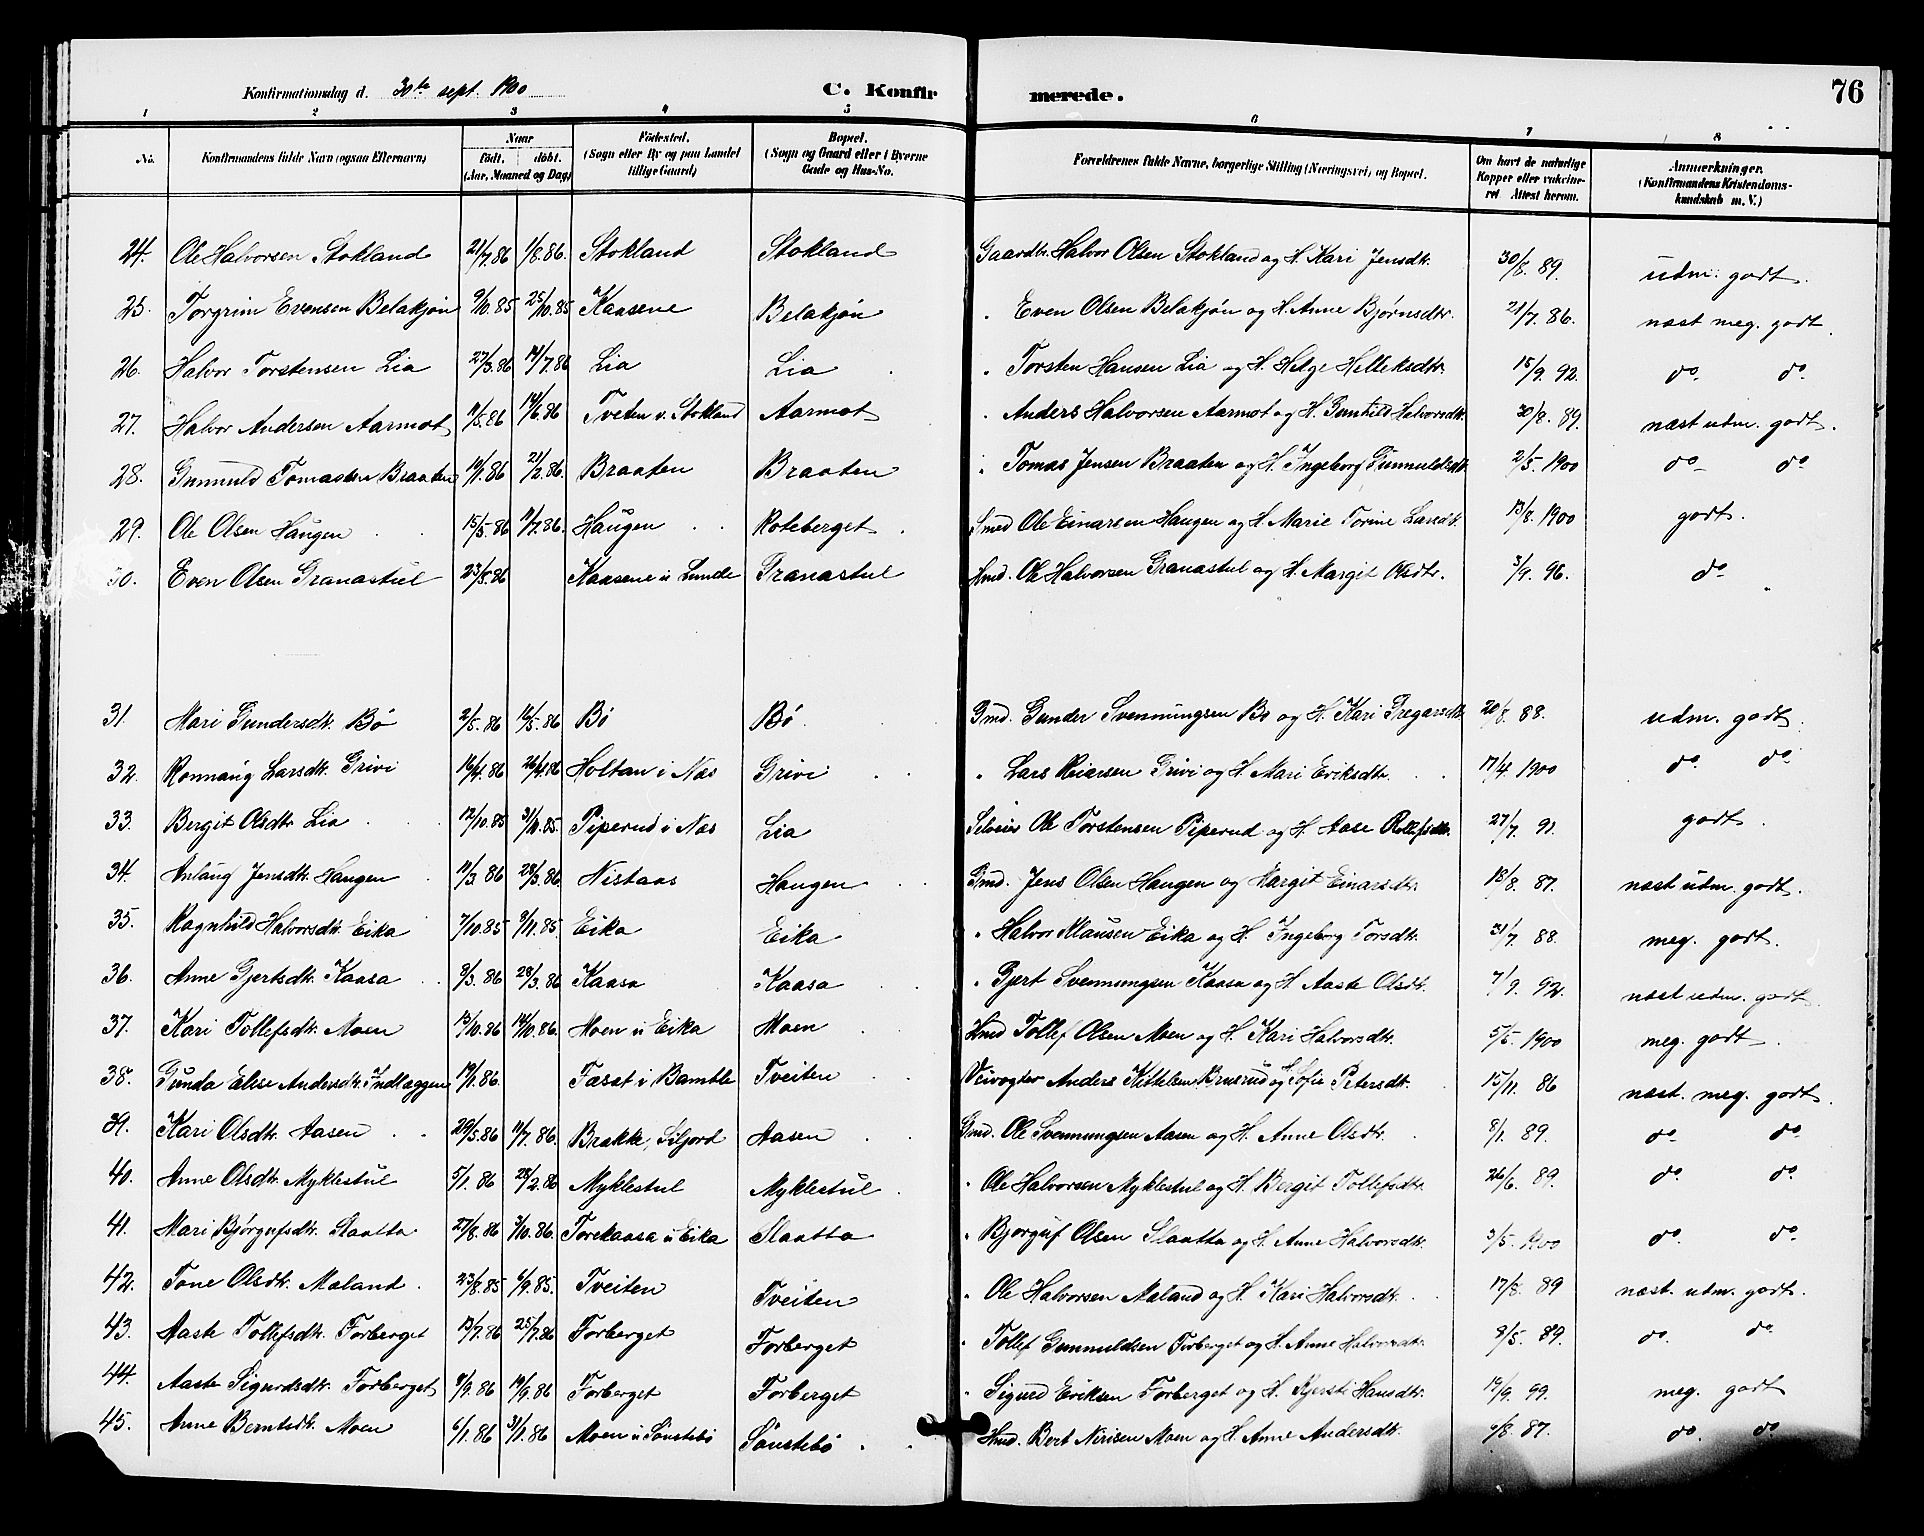 Konfirmationsdag d. 30te sept. 1900 C. Konfirmerede. 76
1 2 3 4 5 6 7 8
No. Konfirmandens fulde Navn (ogsaa Efternavn) Naar født. døbt. (Aar, Maaned og Dag) Födested. (Sogn eller By og paa Landet tillige Gaard) Bopæl. (Sogn og Gaard eller i Byerne Gade og Hus-No. Forældrenes fulde Navne, borgerlige Stilling (Næringsvei) og Bopæl. Om havt de naturlige Kopper eller vakcineret Attest herom. Anmærkninger. (Konfirmandens Kristendomskundskab m. V.)
24. Ole Halvorsen Stokland 21/7.86 1/8.86. Stokland Stokland Gaardbr. Halvor Olsen Stokland og H. Kari Jensdtr. 30/8. 89. udm. godt.
25. Torgrim Evensen Belakjøn 9/10.85 25/10.85 Kaasene Belakjøn " Even Olsen Belakjøn og H. Anne Bjørnsdtr. 21/7. 86. næst meg. godt.
26. Halvor Torstensen Lia 27/3.86 14/7.86 Lia Lia " Torsten Hansen Lia og H. Helge Helleksdtr. 15/9. 92. do. do.
27. Halvor Andersen Aarmot 11/5.86 14/6.86 Tveten v. Stokland Aarmot " Anders Halvorsen Aarmot og H. Gunhild Halvorsdtr. 30/8. 89. næst udm. godt.
28. Gunnuld Tomassen Braaten 19/1.86 21/2.86. Braaten Braaten " Tomas Jensen Braaten og H. Ingeborg Gunnuldsdtr. 2/5. 1900 do do
29. Ole Olsen Haugen 15/5.86 11/7.86. Haugen Roteberget Smed Ole Einarsen Haugen og H. Marie Torine Larsdtr. 13/8. 1900 godt.
30. Even Olsen Granastul 23/8.86 Kaasene u Lunde Granastul Hmd. Ole Halvorsen Granastul og H. Margit Olsdtr. 3/9. 96. do
31. Mari Gundersdtr. Bø 2/5.86 16/5.86 Bø Bø. Gmd. Gunder Svennungsen Bø og H. Kari Gregarsdtr. 20/8. 88. udm. godt.
32. Ronnaug Larsdtr. Grivi 16/4.86 26/4.86 Holtan i Næs Grivi " Lars Reiarsen Grivi og H. Mari Eriksdtr. 17/4. 1900 do. do.
33. Bergit Olsdtr. Lia 12/10.85 31/10.85. Piperud i Næs Lia Selveier Ole Torstensen Piperud og H. Aase Rollefsdtr. 27/7. 91. godt.
34. Anlaug Jensdtr. Haugen 11/3.86 28/3.86. Nistaas Haugen Gmd. Jens Olsen Haugen og Margit Einarsdtr. 18/8. 87. næst udm. godt.
35. Ragnhild Halvorsdtr. Eika 7/10.85 9/11.85. Eika Eika " Halvor Klausen Eika og H. Ingeborg Torsdtr. 31/7. 88. meg. godt.
36. Anne Gjertsdtr. Kaasa 9/3.86 28/3.86 Kaasa Kaasa " Gjert Svennungsen Kaasa og H. Aaste Olsdtr. 7/9. 92. næst udm. godt
37. Kari Tollefsdtr. Moen 10.86 14/10.86. Moen u Eika Moen Hmd Tollef Olsen Moen og H. Kari Halvorsdtr. 5/5. 1900 meg. godt.
38. Gunda Elise Andersdtr. Indlæggen 19/1.86. Fasat i Bamble Tveiten Veivogter Anders Kittelsen Bruserud og H. Sofie Petersdtr. 15/11. 86 næst. meg. godt.
39. Kari Olsdtr. Aasen 29/5.86 11/7.86. Brakke, Siljord Aasen Gmd. Ole Svennungsen Aasen og H. Anne Olsdtr. 8/1. 89. do. do.
40. Anne Olsdtr. Myklestul 5/1.86 28/2.86 Myklestul Myklestul. " Ole Halvorsen Myklestul og H. Bergit Tollefsdtr. 26/6. 89. do. do
41. Mari Bjørgufsdtr. Slaatta 27/8.86 3/10.86. Torekaasa u Eika Slaatta " Bjørguf Olsen Slaatta og H. Anne Halvorsdtr. 3/5. 1900 do. do.
42. Tone Olsdtr. Mæland. 23/8.85 6/9.85. Tveiten Tveiten " Ole Halvorsen Mæland og H. Kari Halvorsdtr. 17/8. 89 næst. udm. godt.
43. Aaste Tollefsdtr. Forberget 13/7.86 25/7.86 Forberget Forberget " Tollef Gunnuldsen Forberget og H. Anne Halvorsdtr. 8/5. 89. do. do.
44. Aaste Sigurdsdtr. Forberget 9/9.86 19/9.86 Forberget Forberget " Sigurd Eriksen Forberget og H. Kjersti Hansdtr. 19/9. 99. meg. godt
45. Anne Berntsdtr. Moen 6/1.86 31/1.86 Moen u Sønstebø Sønstebø. Hmd. Bert Nirisen Moen og H. Anne Andersdtr. 6/8. 87. do. do.